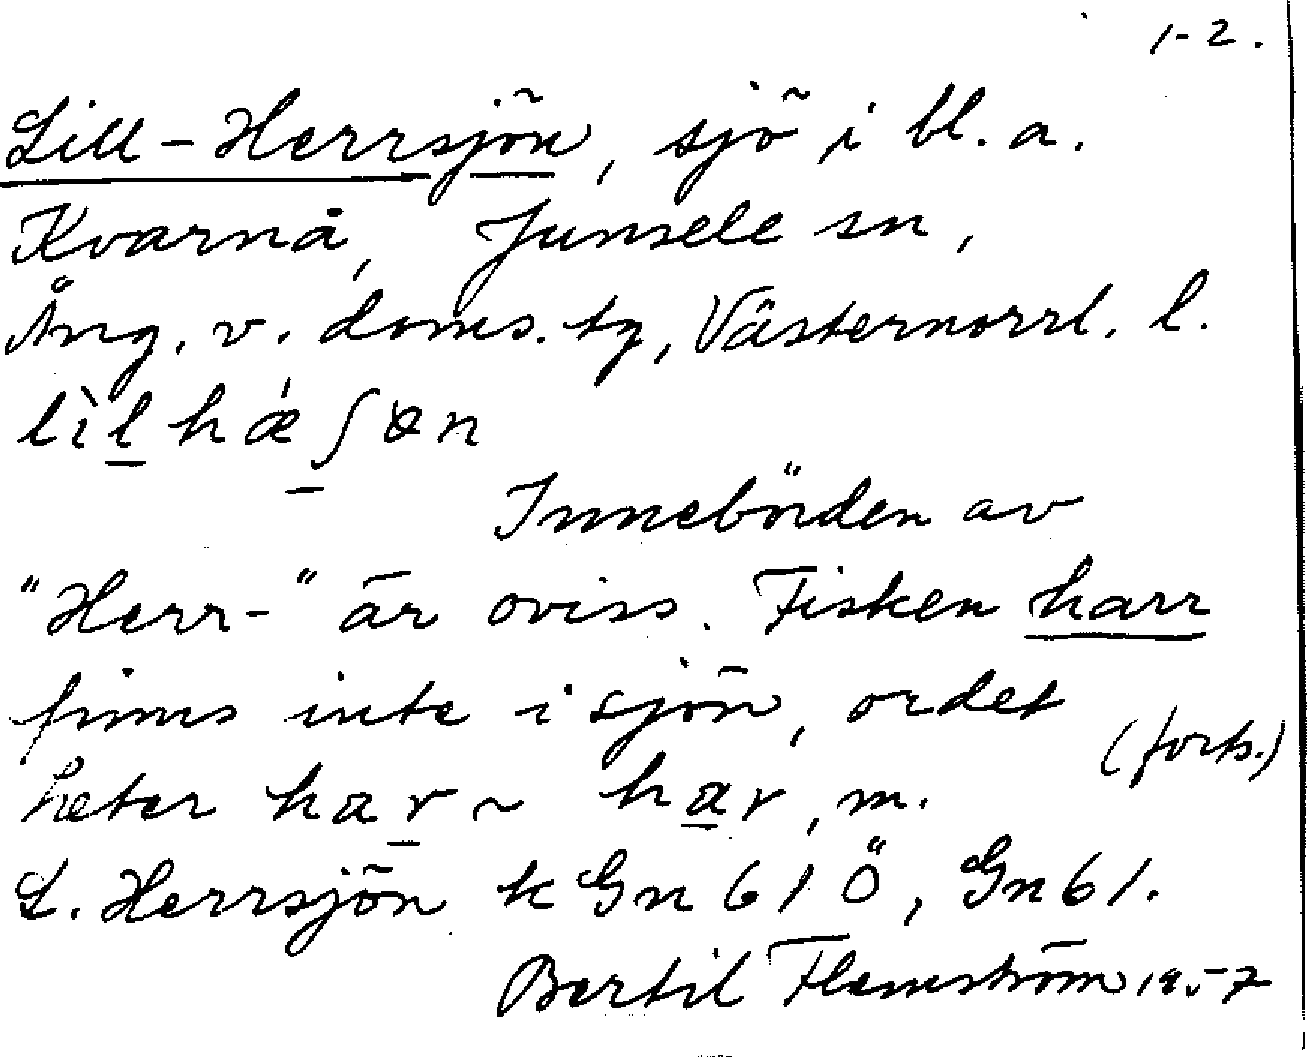 1-2.
Lill-Herrsjön, sjö i bl. a.
Kvarnå, Junsele sn,
Ång. v. doms. tg, Västernorrl. l.
lìlhǽʃɶn
Innebörden av
"Herr-" är oviss. Fisken harr
finns inte i sjön, ordet
(forts.)
heter har ~ har, m.
L. Herrsjön k Gn 61 Ö, Gn 61.
Bertil Flemström 1957